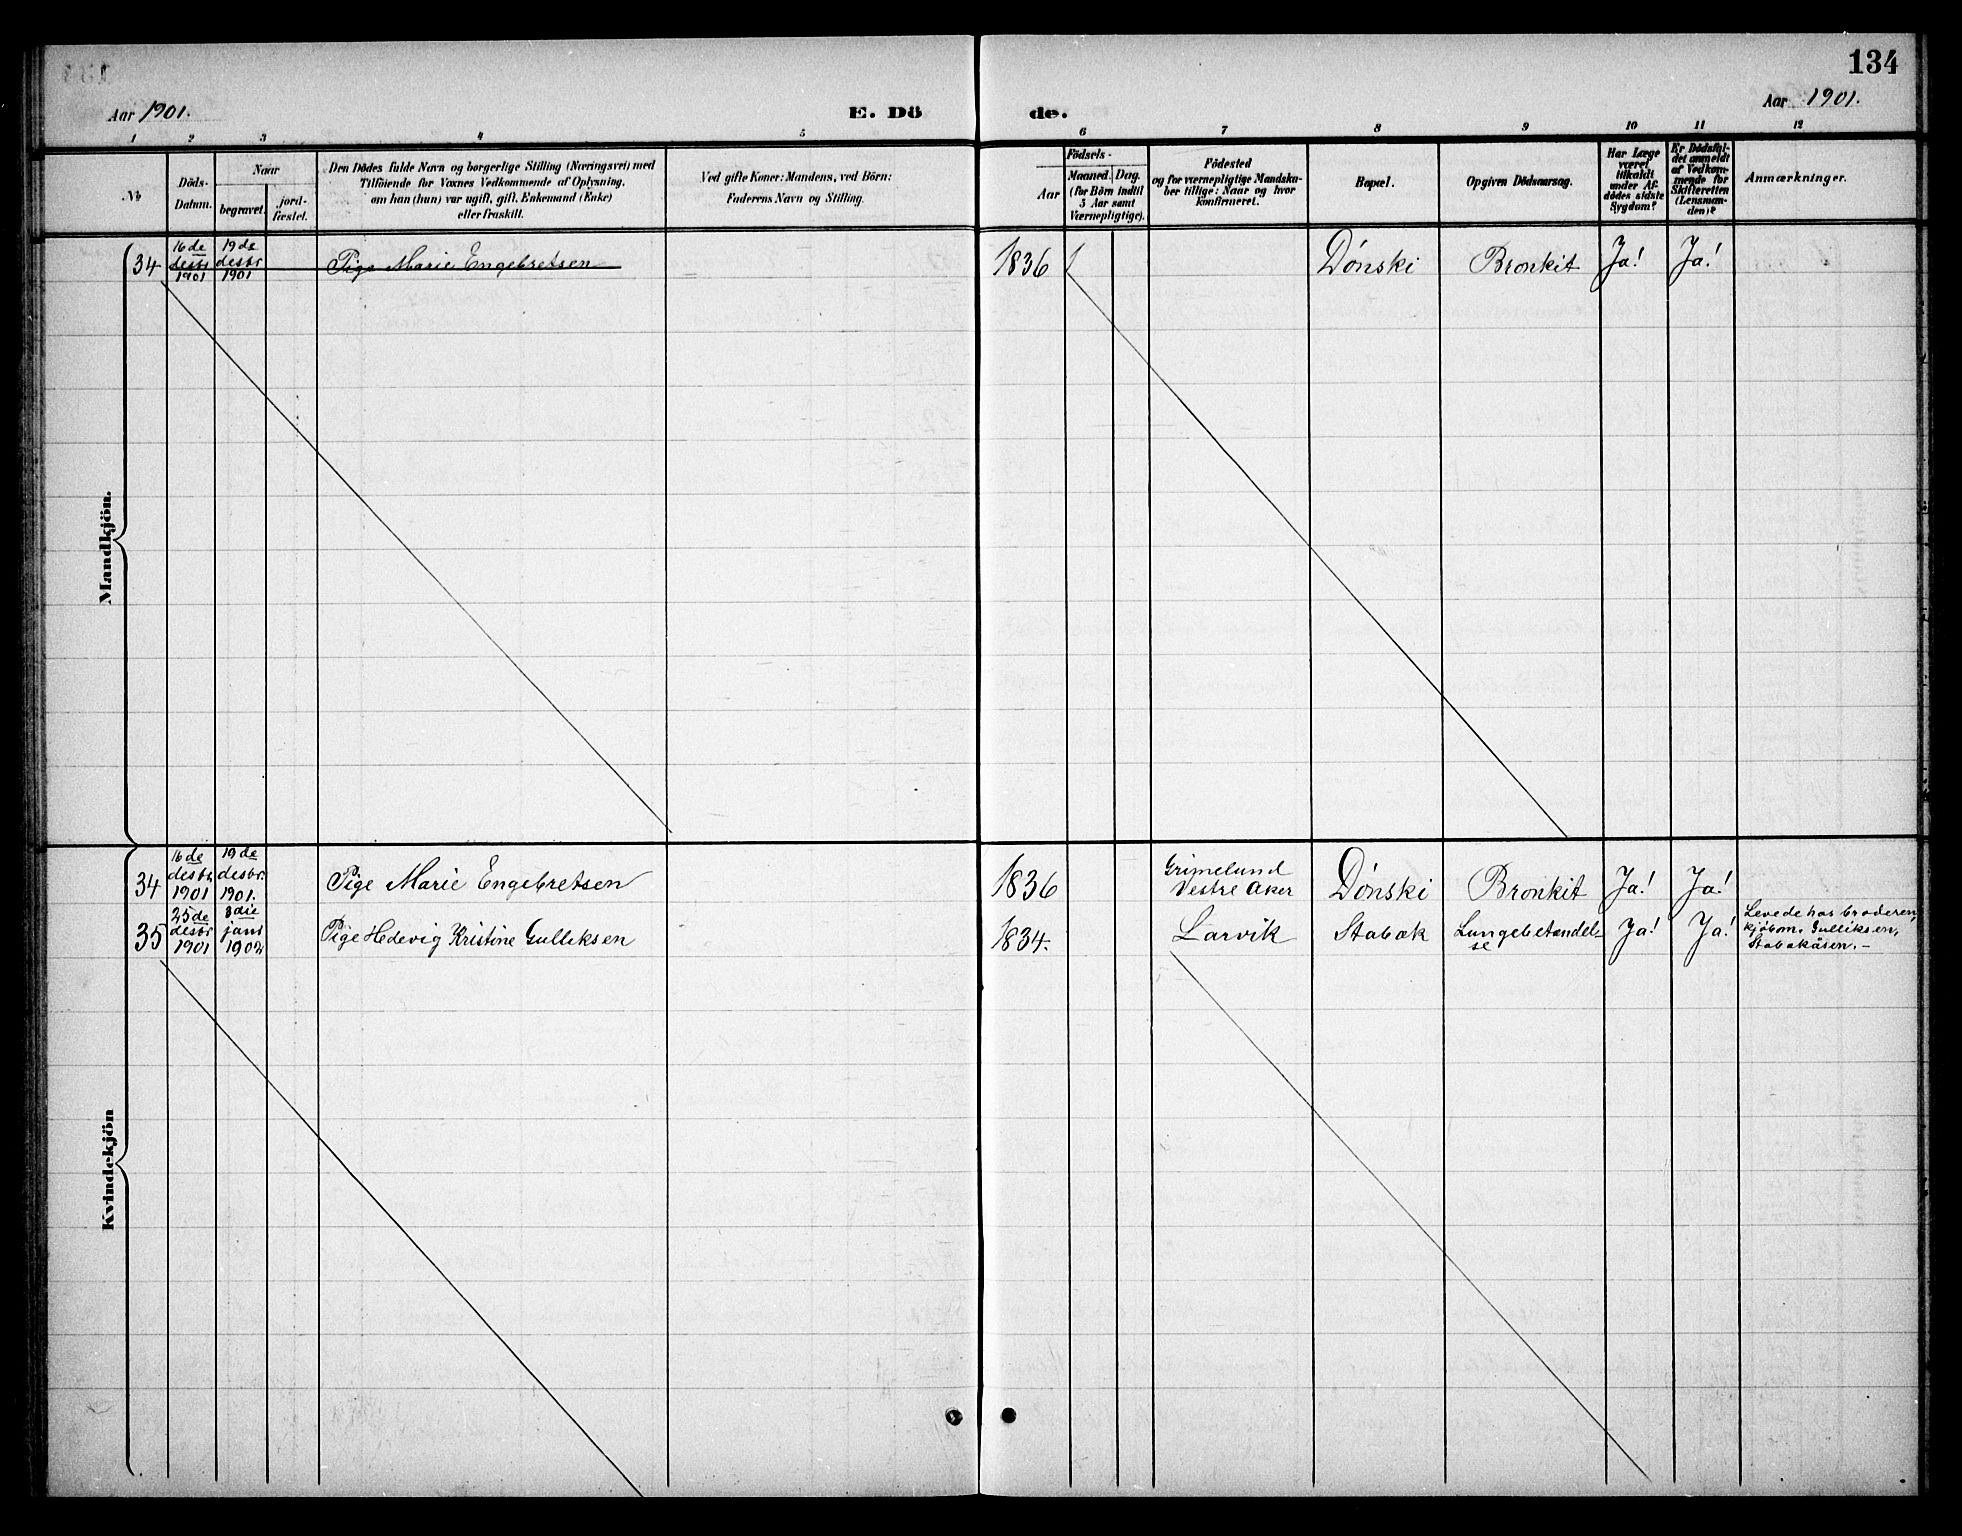 134
Aar 1901. E. Dö de. Aar 1901.
1 2 3 4 5 6 7 8 9 10 11 12
No
Döds-
Datum.
Naar
begravet.
jord-
fæstet.
Den Dödes fulde Navn og borgerlige Stilling (Næringsvei) med
Tilföiende for Voxnes Vedkommende af Oplysning,
om han (hun) var ugift, gift, Enkemand (Enke)
eller fraskilt.
Ved gifte Koner: Mandens, ved Börn:
Faderens Navn og Stilling.
Födsels-
Aar
Maaned. Dag.
(for Börn indtil
5 Aar samt
Værnepligtige).
Födested
og for værnepligtige Mandska-
ber tillige: Naar og hvor
konfirmeret.
Bopæl.
Opgiven Dödsaarsag.
Har Læge
været
tilkaldt
under Af-
dödes sidste
Sygdom?
Er Dödsfal-
det anmeldt
af Vedkom-
mende for
Skifteretten
(Lensman-
den)?
Anmærkninger.
Mandkjön.
34
16 de
desbr
1901
19 de
desbr
1901
Pige Marie Engebretsen
1836
Dønski
Bronkit
Ja!
Ja!
Kvindekjön
34
16 de
desbr.
1901
19 de
desbr.
1901.
Pige Marie Engebretsen
1836
Grimelund
Vestre Aker
Dønski
Bronkit
Ja!
Ja!
35
25 de
desbr
1901
3 die
janr
1902
Pige Hedevig Kristine Gulliksen
1834.
Larvik
Stabæk
Lungebetændel-
se
Ja!
Ja!
Levede hos broderen,
kjøbm. Gulliksen,
Stabækåsen. –